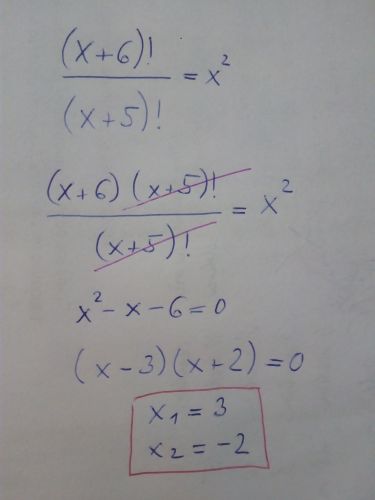 (x+6)!
= x²
(x+5)!
(x+6) (x+5)!
= x²
(x+5)!
x² - x - 6 = 0
(x - 3)(x + 2) = 0
x₁ = 3
x₂ = -2